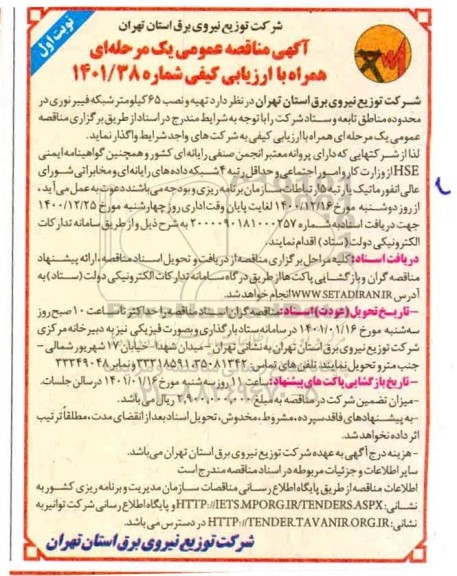 شرکت توزیع نیروی برق استان تهران
نوبت اول
آگهی مناقصه عمومی یک مرحله‌ای
همراه با ارزیابی کیفی شماره ۱۴۰۱/۳۸
شرکت توزیع نیروی برق استان تهران در نظر دارد تهیه و نصب ۶۵ کیلومتر شبکه فیبر نوری در
محدوده مناطق تابعه و ستاد شرکت را با توجه به شرایط مندرج در اسناد از طریق برگزاری مناقصه
عمومی یک مرحله‌ای همراه با ارزیابی کیفی به شرکت های واجد شرایط واگذار نماید.
لذا از شرکتهایی که دارای پروانه معتبر انجمن صنفی رایانه ای کشور و همچنین گواهینامه ایمنی
HSE از وزارت کار و امور اجتماعی و حداقل رتبه ۴ شبکه داده های رایانه ای و مخابراتی شورای
عالی انفورماتیک یا رتبه ۵ ارتباطات سازمان برنامه ریزی و بودجه می باشند دعوت به عمل می آید،
از روز دوشنبه مورخ ۱۴۰۰/۱۲/۱۶ لغایت پایان وقت اداری روز چهارشنبه مورخ ۱۴۰۰/۱۲/۲۵
جهت دریافت اسناد به شماره ۲۰۰۰۰۹۰۱۸۱۰۰۰۲۵۷ به شرح ذیل و از طریق سامانه تدارکات
الکترونیکی دولت (ستاد) اقدام نمایند.
دریافت اسناد: کلیه مراحل برگزاری مناقصه از دریافت و تحویل اسناد مناقصه، ارائه پیشنهاد
مناقصه گران و بازگشایی پاکت ها از طریق درگاه سامانه تدارکات الکترونیکی دولت (ستاد) به
آدرس WWW.SETADIRAN.IR انجام خواهد شد.
- تاریخ تحویل (عودت) اسناد: مناقصه گران اسناد مناقصه را حداکثر تا ساعت ۱۰ صبح روز
سه شنبه مورخ ۱۴۰۱/۰۱/۱۶ در سامانه ستاد بارگذاری و بصورت فیزیکی نیز به دبیرخانه مرکزی
شرکت توزیع نیروی برق استان تهران به نشانی تهران - میدان شهدا - خیابان ۱۷ شهریور شمالی -
جنب مترو تحویل نمایند. تلفن های تماس: ۳۵۰۸۱۲۴۲، ۳۳۳۱۸۵۹۱ و نمابر ۳۳۳۴۹۰۴۸
- تاریخ بازگشایی پاکت های پیشنهاد: ساعت ۱۱ روز سه شنبه مورخ ۱۴۰۱/۰۱/۱۶ در سالن جلسات.
- میزان تضمین شرکت در مناقصه به مبلغ ۲,۹۰۰,۰۰۰,۰۰۰ ریال می باشد.
- به پیشنهادهای فاقد سپرده، مشروط، مخدوش، تحویل اسناد بعد از انقضای مدت، مطلقاً ترتیب
اثر داده نخواهد شد.
- هزینه درج آگهی به عهده شرکت توزیع نیروی برق استان تهران می باشد.
سایر اطلاعات و جزئیات مربوطه در اسناد مناقصه مندرج است
اطلاعات مناقصه از طریق پایگاه اطلاع رسانی مناقصات سازمان مدیریت و برنامه ریزی کشور به
نشانی: HTTP://IETS.MPORG.IR/TENDERS.ASPX و پایگاه اطلاع رسانی شرکت توانیر به
نشانی: HTTP://TENDER.TAVANIR.ORG.IR در دسترس می باشد.
شرکت توزیع نیروی برق استان تهران